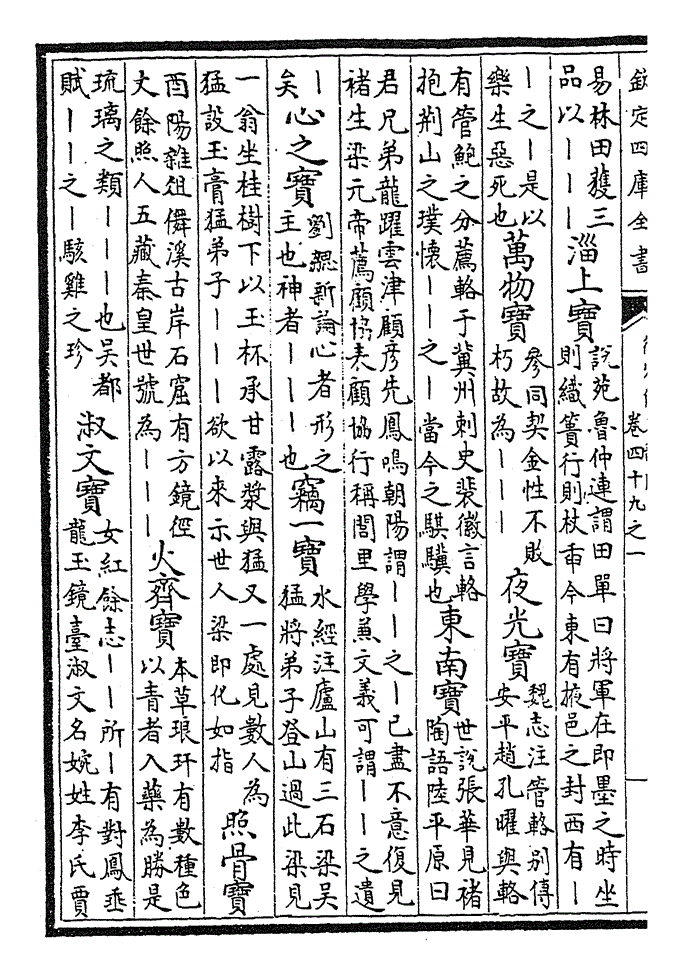 欽定四庫全書
卷四十九之一
易林田獲三
品以｜｜｜
淄上寶
說苑魯仲連謂田單曰將軍在即墨之時坐
則織蕢行則杖臿今東有掖邑之封西有｜
｜之｜是以
樂生惡死也
萬物寶
參同契金性不敗
朽故為｜｜｜
夜光寶
魏志注管輅别傳
安平趙孔曜與輅
有管鮑之分薦輅于冀州刺史裴徽言輅
抱荆山之璞懷｜｜之｜當今之騏驥也
東南寶
世說張華見褚
陶語陸平原曰
君兄弟龍躍雲津顧彦先鳳鳴朝陽謂｜｜之｜已盡不意復見
褚生梁元帝薦顧協表顧協行稱閭里學兼文義可謂｜｜之遺
｜
矣
心之寶
劉勰新論心者形之
主也神者｜｜｜也
竊一寶
水經注廬山有三石梁吳
猛將弟子登山過此梁見
一翁坐桂樹下以玉杯承甘露漿與猛又一處見數人為
猛設玉膏猛弟子｜｜｜欲以来示世人梁即化如指
照骨寶
酉陽雜俎儛溪古岸石窟有方鏡徑
丈餘照人五藏秦皇世號為｜｜｜
火齊寶
本草琅玕有數種色
以青者入藥為勝是
琉璃之類｜｜｜也吳都
賦｜｜之｜駭雞之珍
淑文寶
女紅餘志｜｜所｜有對鳳垂
龍玉鏡臺淑文名婉姓李氏賈